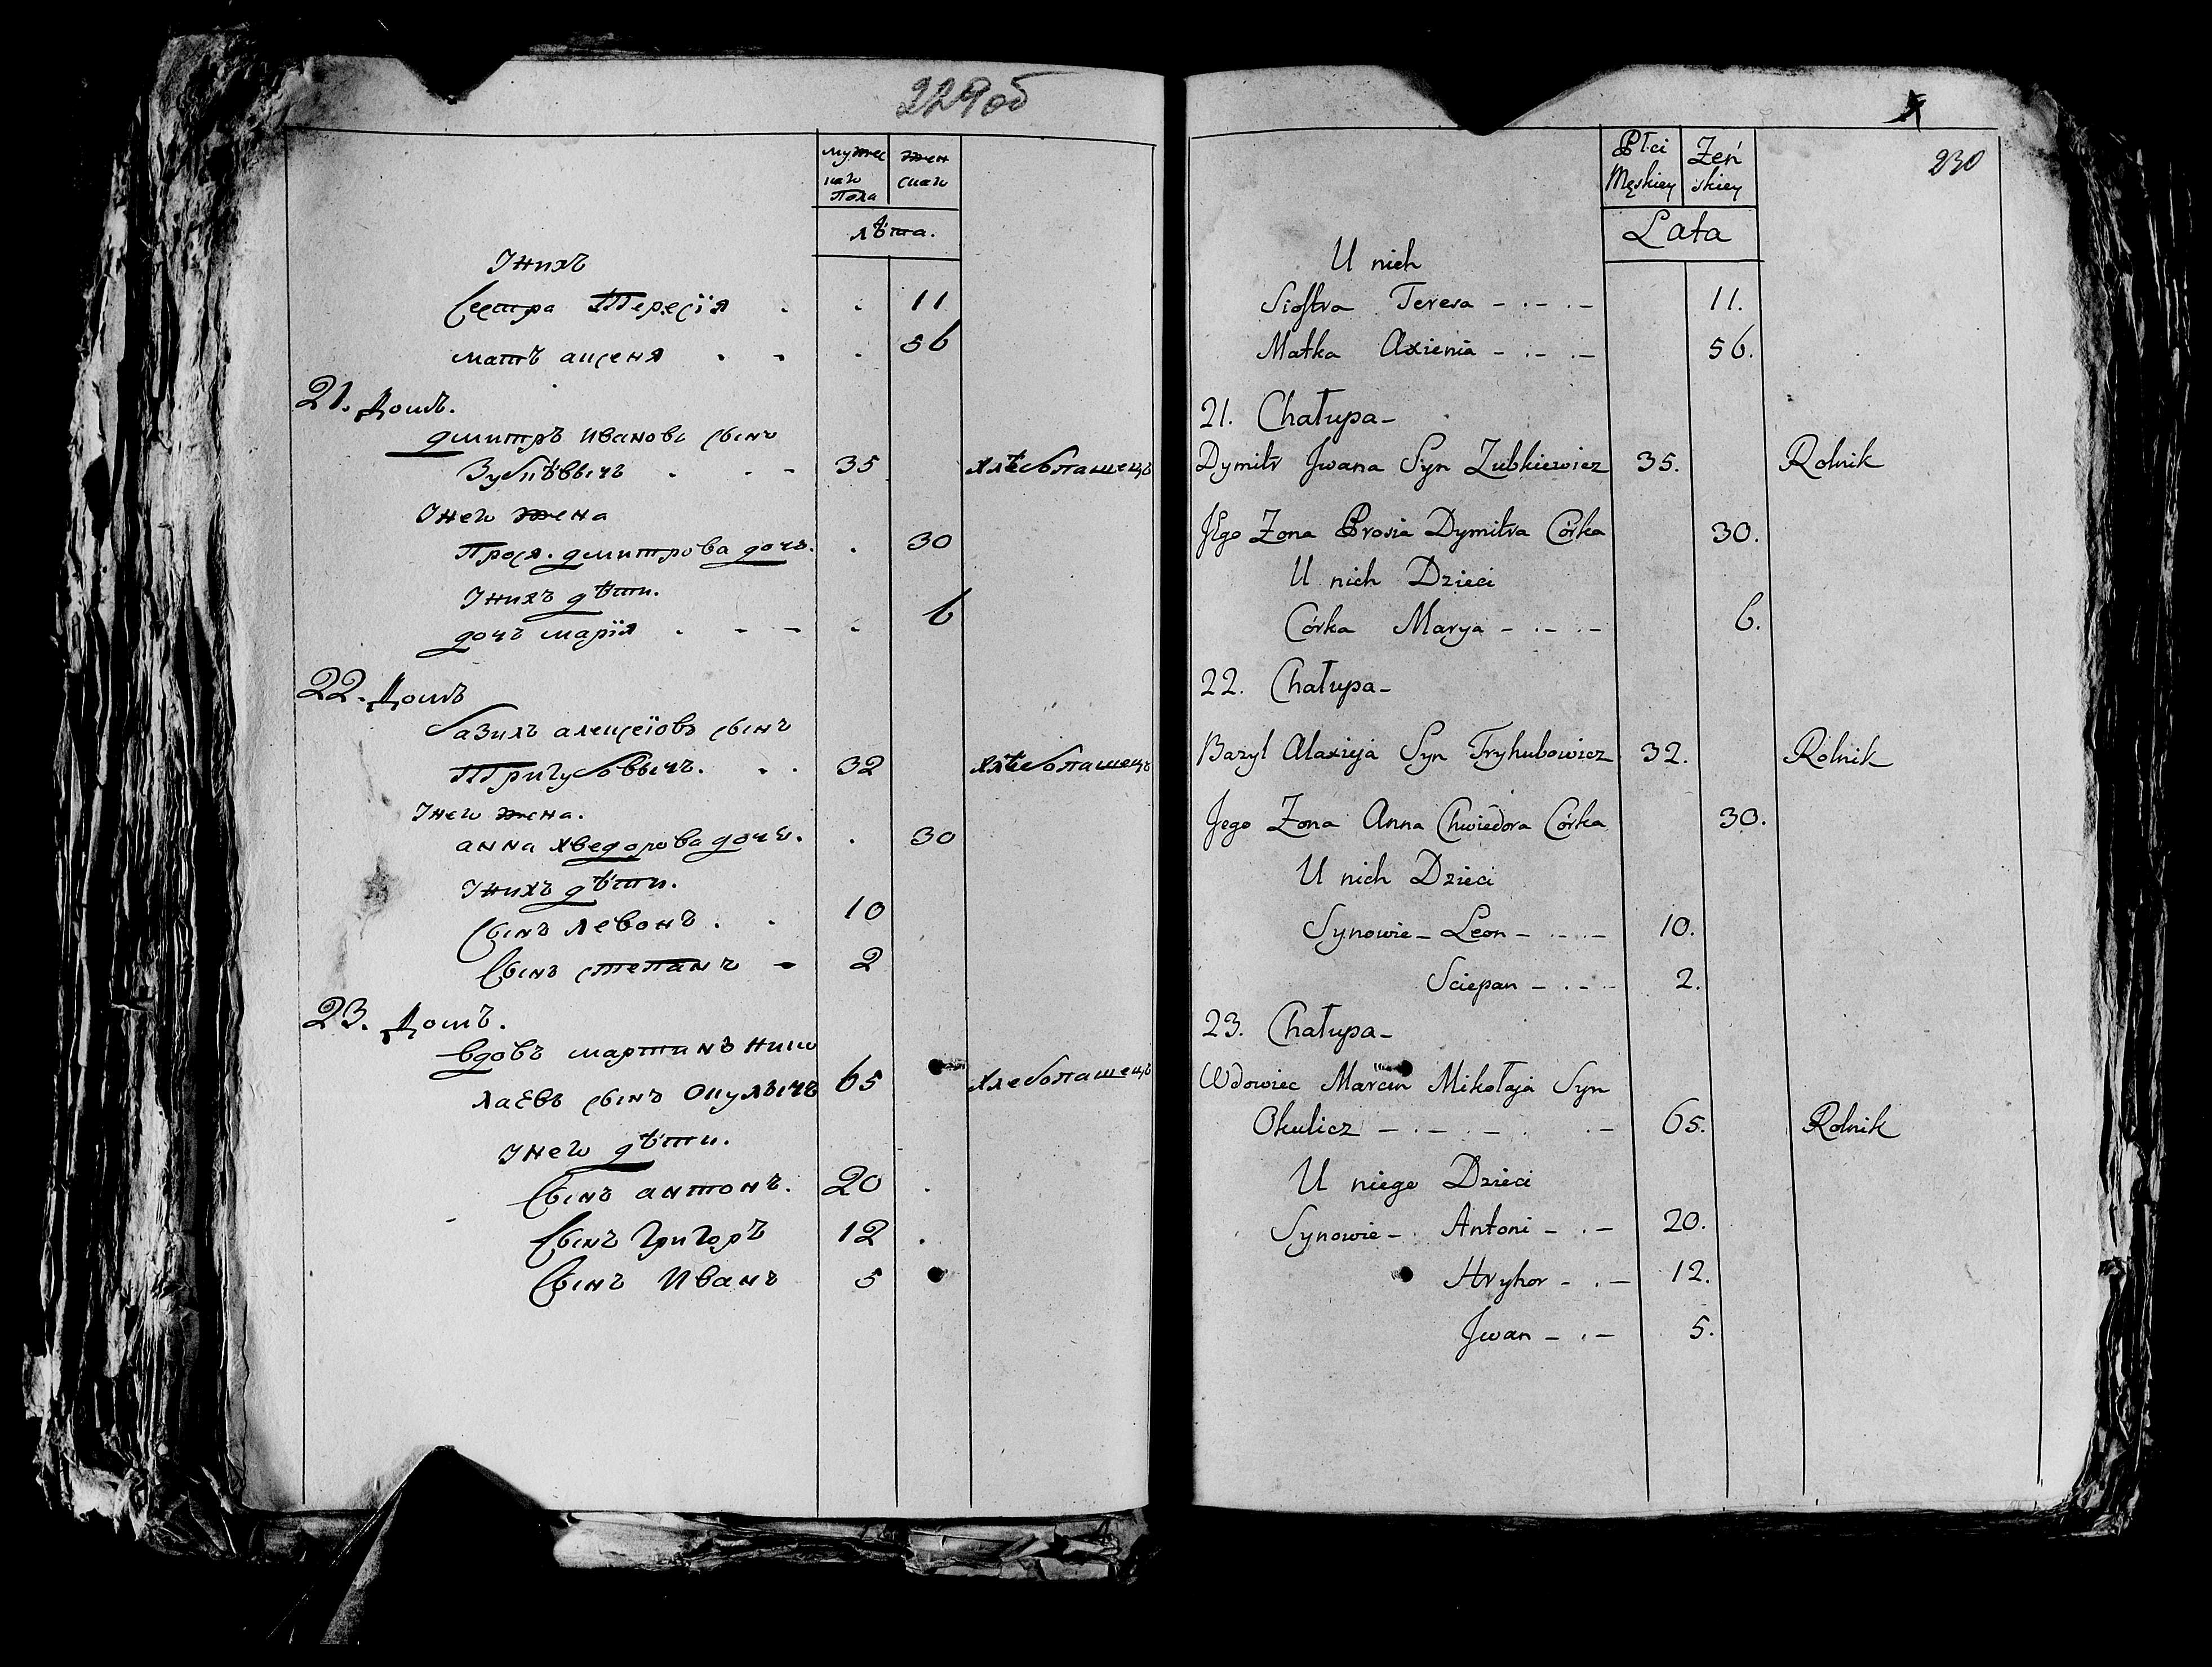 229об
мужес
каго
Пола
жен
скаго
лѣта.
Унихъ
Сестра Тересія . . 11
матъ аксеня . - . 56
21. Домъ.
дмитръ Ивановъ сынъ
Зубкѣвычъ . - - 35 хлѣбопашецъ
Унего жена
Прося. дмитрова дочъ. . 30
Унихъ дѣти.
дочъ марія . - - - 6
22. Домъ
базилъ алексѣіовъ сынъ
Тригубовычъ. . . 32 хлѣбопашецъ
Унего жена.
анна хведорова дочъ. . 30
Унихъ дѣти.
Сынъ левонъ . . 10
Сынъ степанъ - 2
23. Домъ.
вдовъ мартинъ нико
лаевъ сынъ Окулычъ 65 хлебопашецъ
Унего дѣти.
Сынъ антонъ. 20 .
Сынъ григоръ 12 .
Сынъ Иванъ 5
230
Płci
Męskiey
Zeń
skiey
Lata
U nich
Siostra Teresa - . - . - 11.
Matka Axienia - . - . - 56.
21. Chałupa -
Dymitr Jwana Syn Zubkiewicz 35. Rolnik
Jego Zona Prosia Dymitra Córka 30.
U nich Dzieci
Córka Marya - . - . - 6.
22. Chałupa -
Bazyl Alaxieja Syn Tryhubowicz 32. Rolnik
Jego Zona Anna Chwiedora Córka 30.
U nich Dzieci
Synowie - Leon - . . - . - 10.
Sciepan - . - . - 2.
23. Chałupa -
Wdowiec Marcin Mikołaja Syn
Okulicz - . - . - . - 65. Rolnik
U niego Dzieci
Synowie - . Antoni - . - 20.
Hryhor - . - 12.
Jwan - . - 5.